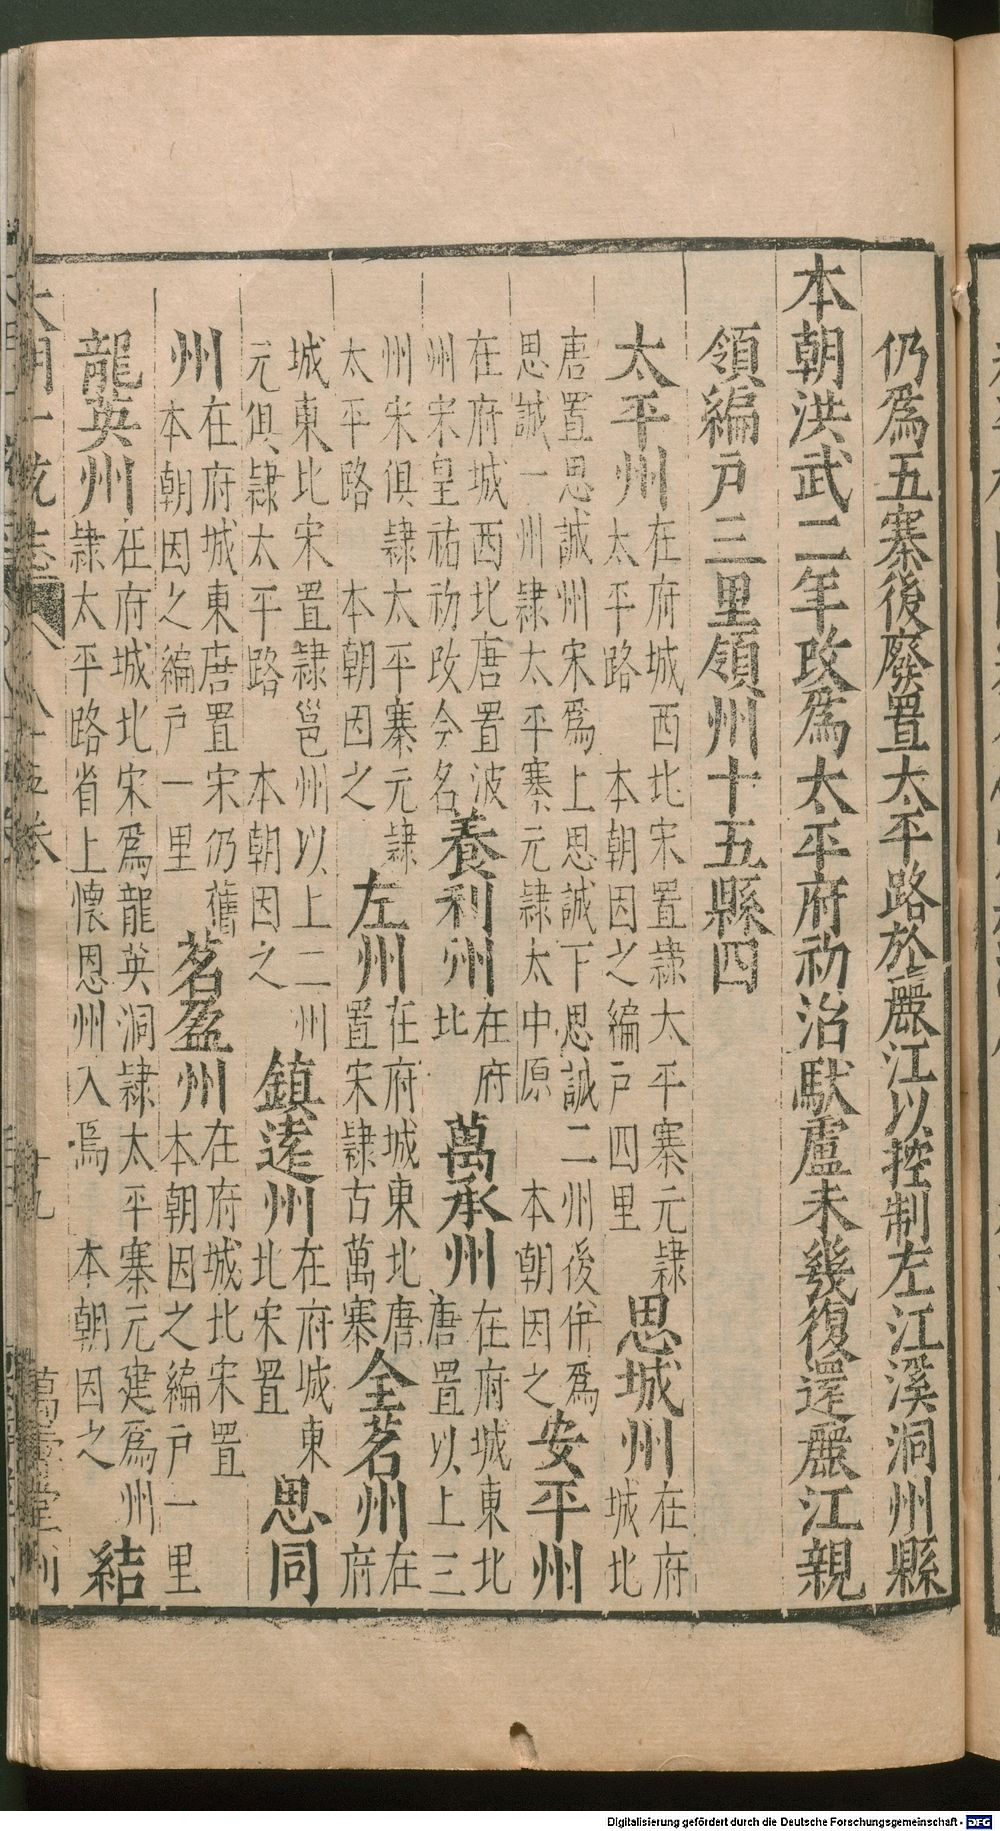 仍爲五寨後廢置太平路於麗江以控制左江溪洞州縣
本朝洪武二年改爲太平府初治馱盧未幾復還麗江親
領編戶三里領州十五縣四
太平州
在府城西北宋置隷太平寨元隷
太平路 本朝因之編戶四里
思城州
在府
城北
唐置思誠州宋爲上思誠下思誠二州後併爲
思誠一州隷太平寨元隷太中原 本朝因之
安平州
在府城西北唐置波
州宋皇祐初改今名
養利州
在府
北
萬承州
在府城東北
唐置以上三
州宋俱隷太平寨元隷
太平路 本朝因之
左州
在府城東北唐
置宋隷古萬寨
全茗州
在
府
城東北宋置隷邕州以上二州
元俱隷太平路 本朝因之
鎮遠州
在府城東
北宋置
思同
州
在府城東唐置宋仍舊
本朝因之編戶一里
茗盈州
在府城北宋置
本朝因之編戶一里
龍英州
在府城北宋爲龍英洞隷太平寨元建爲州
隷太平路省上懷恩州入焉 本朝因之
結
大明一統志 八十五卷 十九 萬壽堂刊
Digitalisierung gefördert durch die Deutsche Forschungsgemeinschaft - DFG